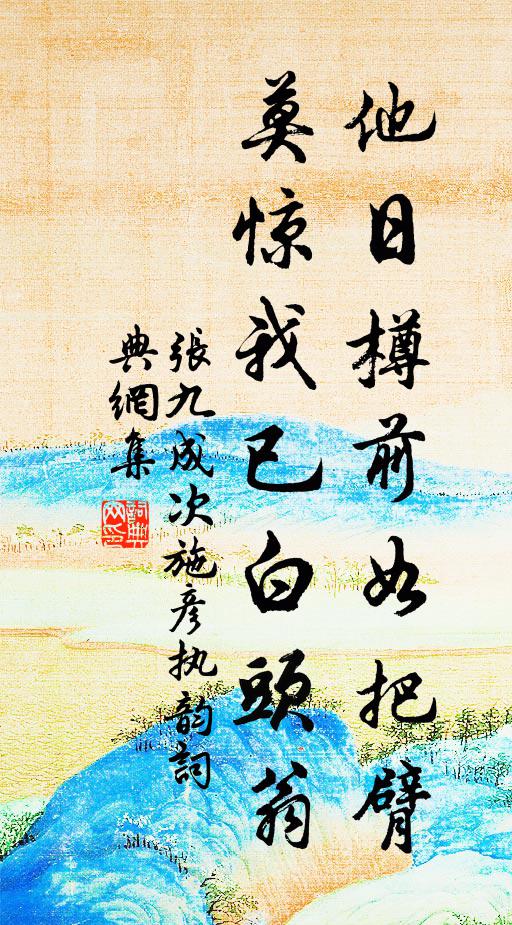 他日樽前如把臂
莫惊我已白頭翁
張九成次施彦执韵詞
典網集
詞典
网印